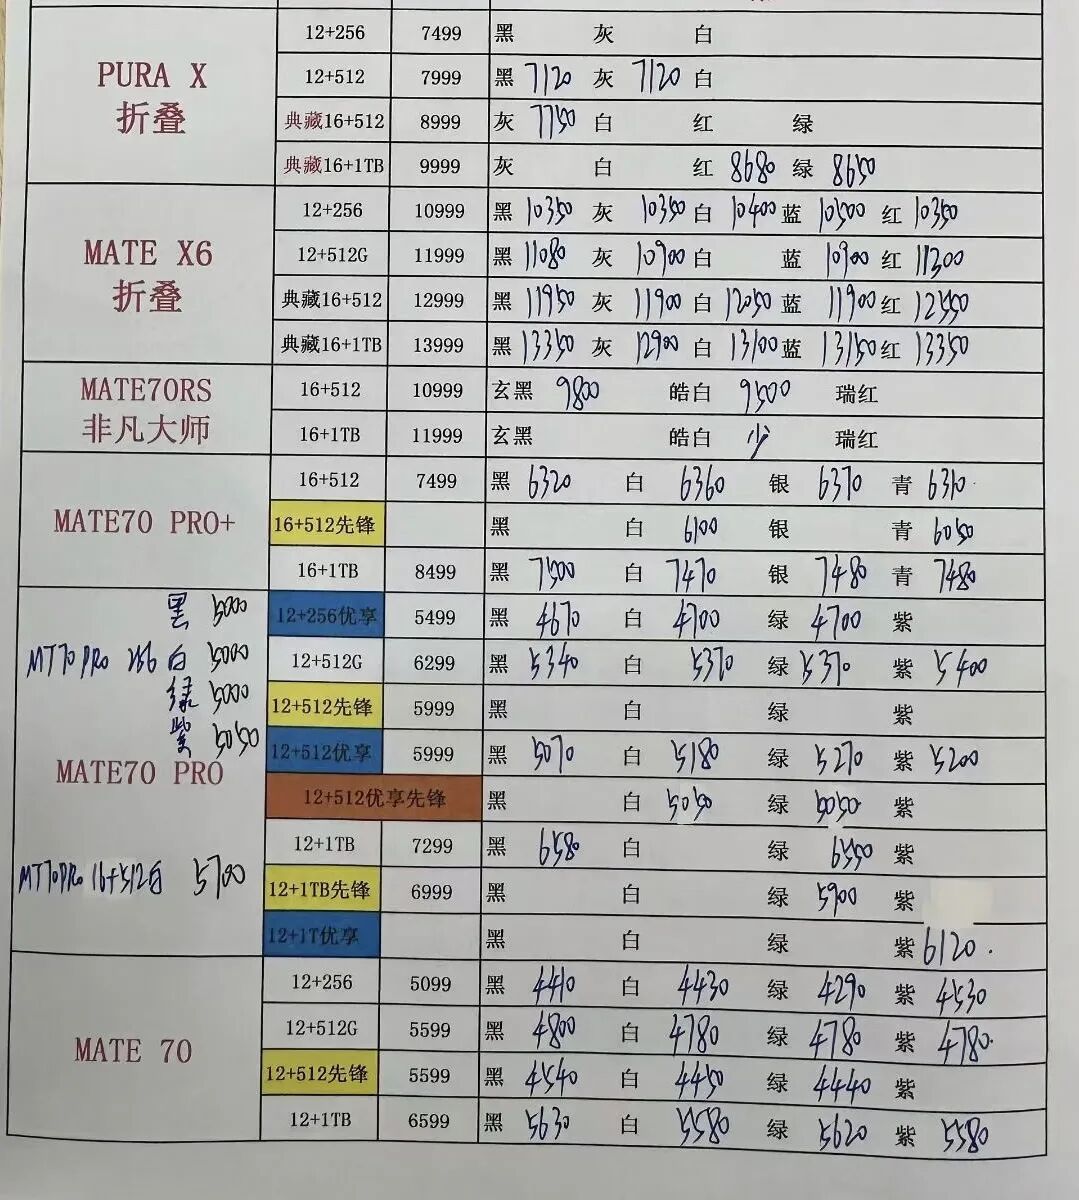 12+256 7499 黑 灰 白
PURA X
折叠
12+512 7999 黑 7120 灰 7120 白
典藏16+512 8999 灰 7750 白 红 绿
典藏16+1TB 9999 灰 白 红 8680 绿 8650
MATE X6
折叠
12+256 10999 黑 10350 灰 10350 白 10400 蓝 10500 红 10350
12+512G 11999 黑 11080 灰 10900 白 蓝 10900 红 11300
典藏16+512 12999 黑 11950 灰 11900 白 12050 蓝 11900 红 12550
典藏16+1TB 13999 黑 13350 灰 12900 白 13100 蓝 13150 红 13350
MATE70RS
非凡大师
16+512 10999 玄黑 9800 皓白 9500 瑞红
16+1TB 11999 玄黑 皓白 少 瑞红
MATE70 PRO+
16+512 7499 黑 6320 白 6360 银 6370 青 6310
16+512先锋 黑 白 6100 银 青 6050
16+1TB 8499 黑 7500 白 7470 银 7480 青 7480
黑 5000
MT70 PRO 256 白 5000
绿 5000
紫 5050
MATE70 PRO
MT70PRO 16+512白 5700
12+256优享 5499 黑 4670 白 4700 绿 4700 紫
12+512G 6299 黑 5340 白 5370 绿 5370 紫 5400
12+512先锋 5999 黑 白 绿 紫
12+512优享 5999 黑 5070 白 5180 绿 5270 紫 5200
12+512优享先锋 黑 白 5050 绿 5050 紫
12+1TB 7299 黑 6580 白 绿 6550 紫
12+1TB先锋 6999 黑 白 绿 5900 紫
12+1T优享 黑 白 绿 紫 6120.
MATE 70
12+256 5099 黑 4410 白 4430 绿 4290 紫 4530
12+512G 5599 黑 4800 白 4780 绿 4780 紫 4780
12+512先锋 5599 黑 4540 白 4450 绿 4440 紫
12+1TB 6599 黑 5630 白 5580 绿 5620 紫 5580